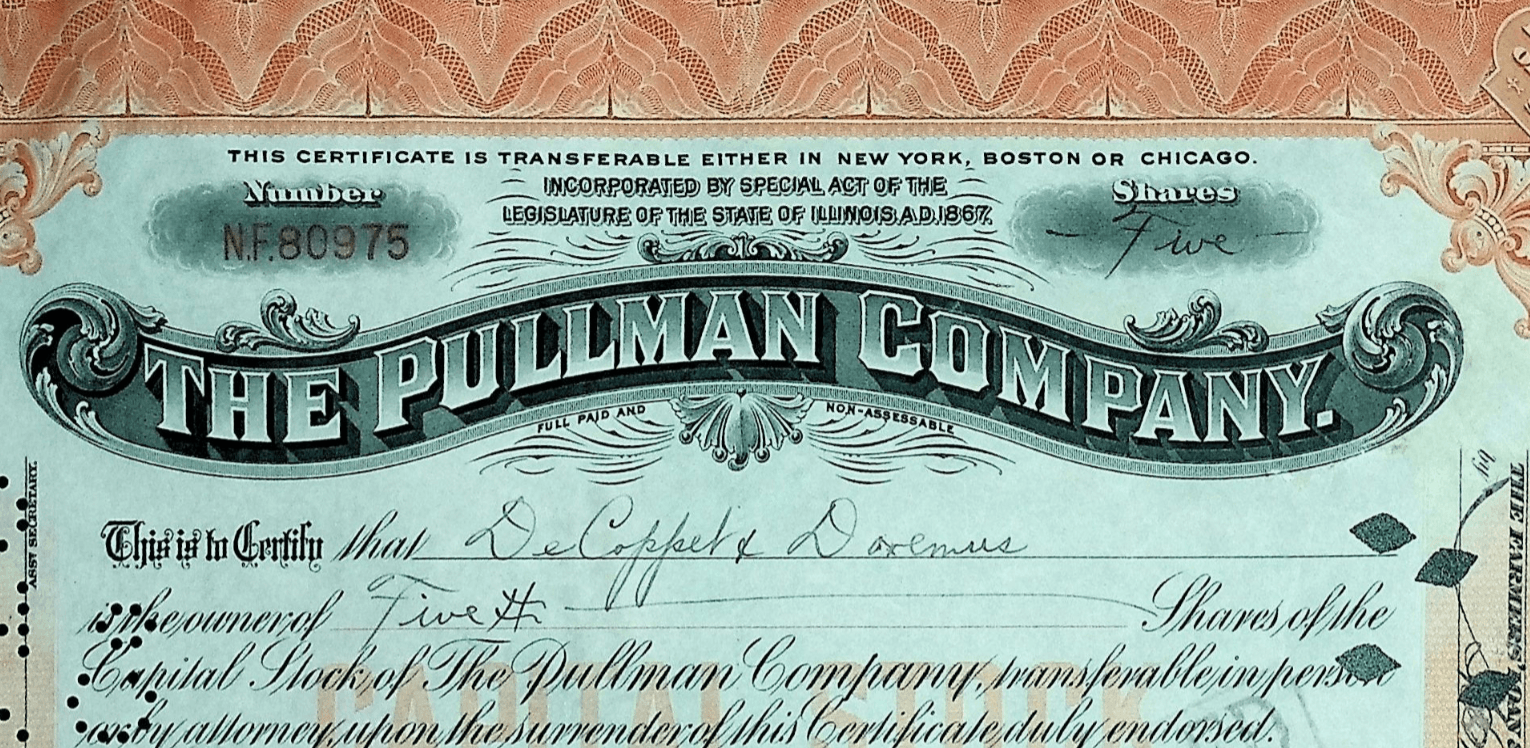 THIS CERTIFICATE IS TRANSFERABLE EITHER IN NEW YORK, BOSTON OR CHICAGO.
Number
N.F.80975
INCORPORATED BY SPECIAL ACT OF THE
LEGISLATURE OF THE STATE OF ILLINOIS, A.D. 1867.
Shares
Five
THE PULLMAN COMPANY.
FULL PAID AND NON-ASSESSABLE
This is to Certify that De Coppet & Doremus
is the owner of Five Shares of the
Capital Stock of The Pullman Company, transferable in person
or by attorney, upon the surrender of this Certificate duly endorsed.
CAPITAL STOCK
ASST SECRETARY.
by
THE FARMERS' LOAN